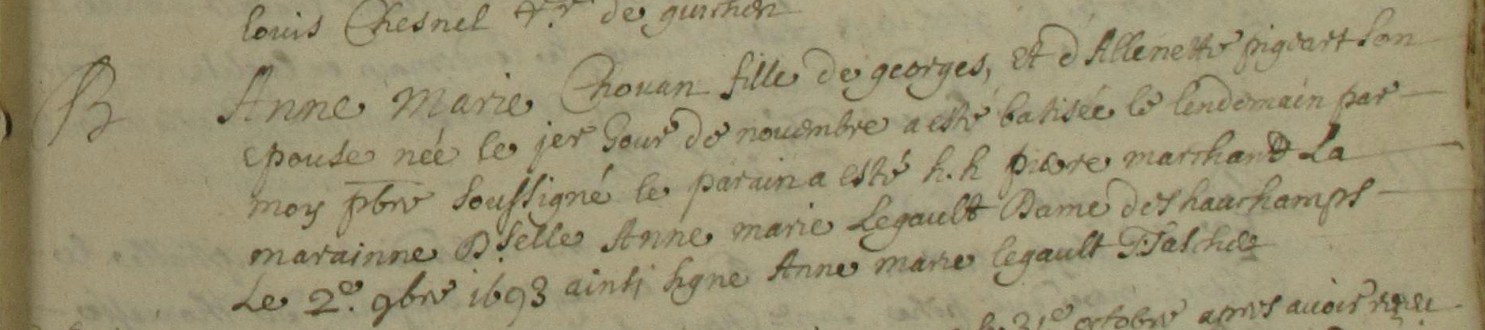 louis Chesnel de guichen
B Anne Marie Chouan fille de georges, et d Allenette pigeart son
epouse née le jer Jour de novembre a esté batisée le lendemain par
moy pbre soussigné le parain a esté h. h pierre marchand La
marainne Dselle Anne marie Legault Dame des hauchamps
Le 2e. 9bre 1693 ainsi signe Anne marie legault
31e octobre apres avoir